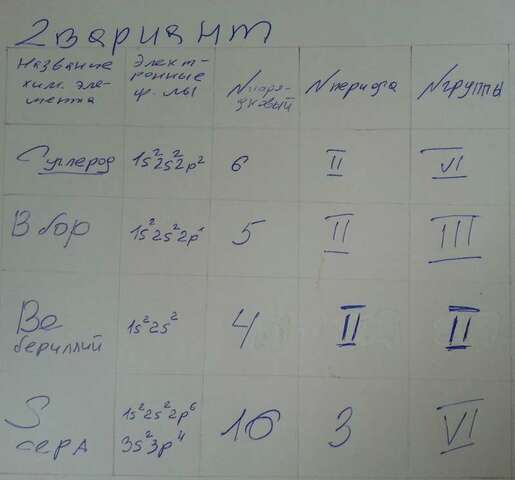 2 вариант
Название хим. элемента | Электронные ф. лы | N порядковый | N периода | N группы
C углерод | 1s² 2s² 2p² | 6 | II | VI
B бор | 1s² 2s² 2p¹ | 5 | II | III
Be бериллий | 1s² 2s² | 4 | II | II
S сера | 1s² 2s² 2p⁶ 3s² 3p⁴ | 16 | 3 | VI